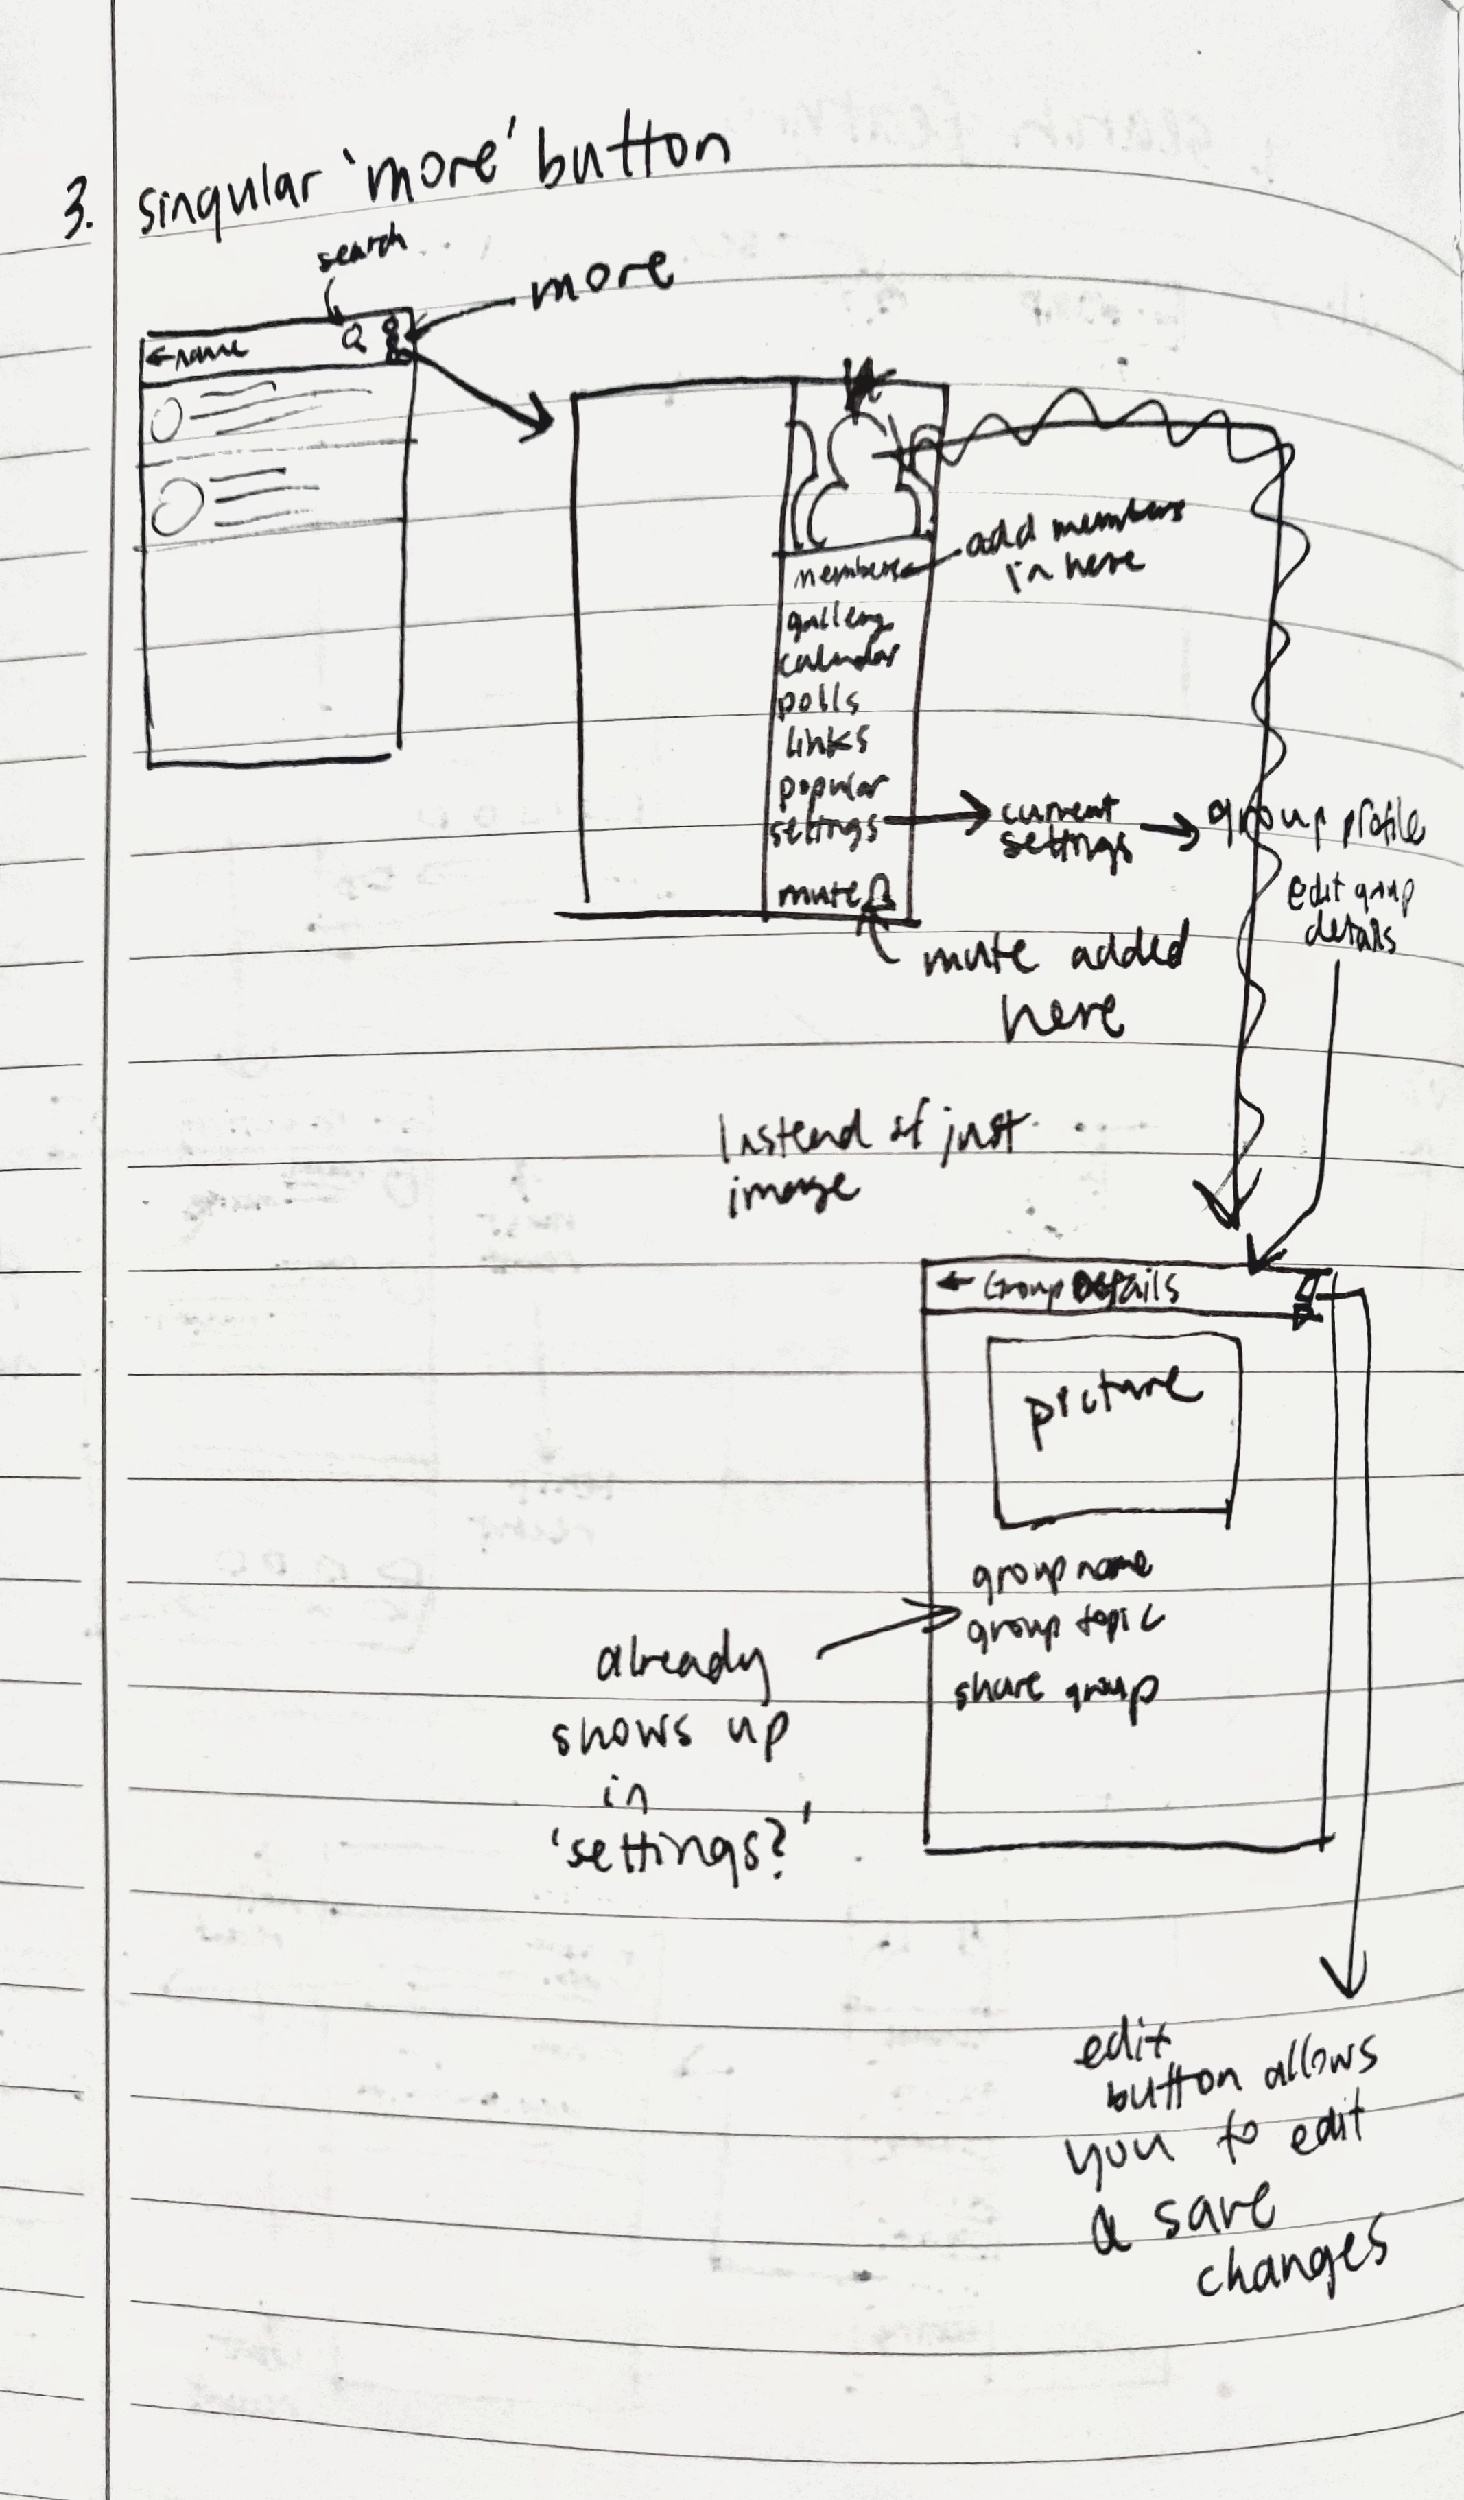 3. singular 'more' button
search
more
←name
add members
in here
members
gallery
calendar
polls
links
popular
settings
current
settings
group profile
edit group
details
mute
mute added
here
Instead of just
image
← Group Details
picture
group name
group topic
share group
already
shows up
in
'settings?'
edit
button allows
you to edit
& save
changes